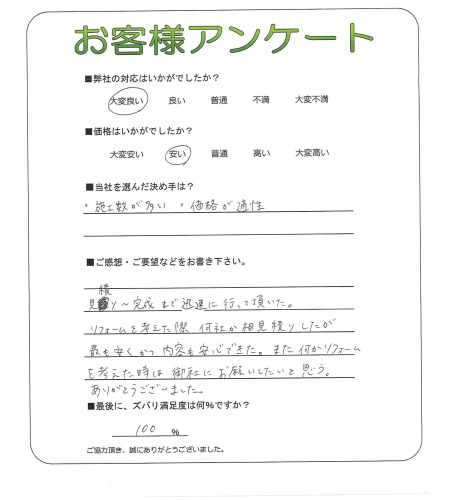 お客様アンケート
■弊社の対応はいかがでしたか?
大変良い 良い 普通 不満 大変不満
■価格はいかがでしたか?
大変安い 安い 普通 高い 大変高い
■当社を選んだ決め手は?
・施工数が多い ・価格が適性
■ご感想・ご要望などをお書き下さい。
積
見り〜完成まで迅速に行って頂いた。
リフォームを考えた際 何社か相見積りしたが
最も安くかつ内容も安心できた。また何かリフォーム
を考えた時は御社にお願いしたいと思う。
ありがとうございました。
■最後に、ズバリ満足度は何%ですか?
100 %
ご協力頂き、誠にありがとうございました。